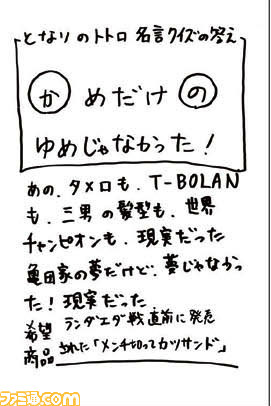 となりのトトロ 名言クイズの答え
かめだけの
ゆめじゃなかった!
あの、タメ口も、T-BOLAN
も、三男の髪型も、世界
チャンピオンも、現実だった
亀田家の夢だけど、夢じゃなかっ
た!現実だった
希望 ランダエダ戦直前に発売
商品 された「メンチ切ってカツサンド」
ファミ通.com